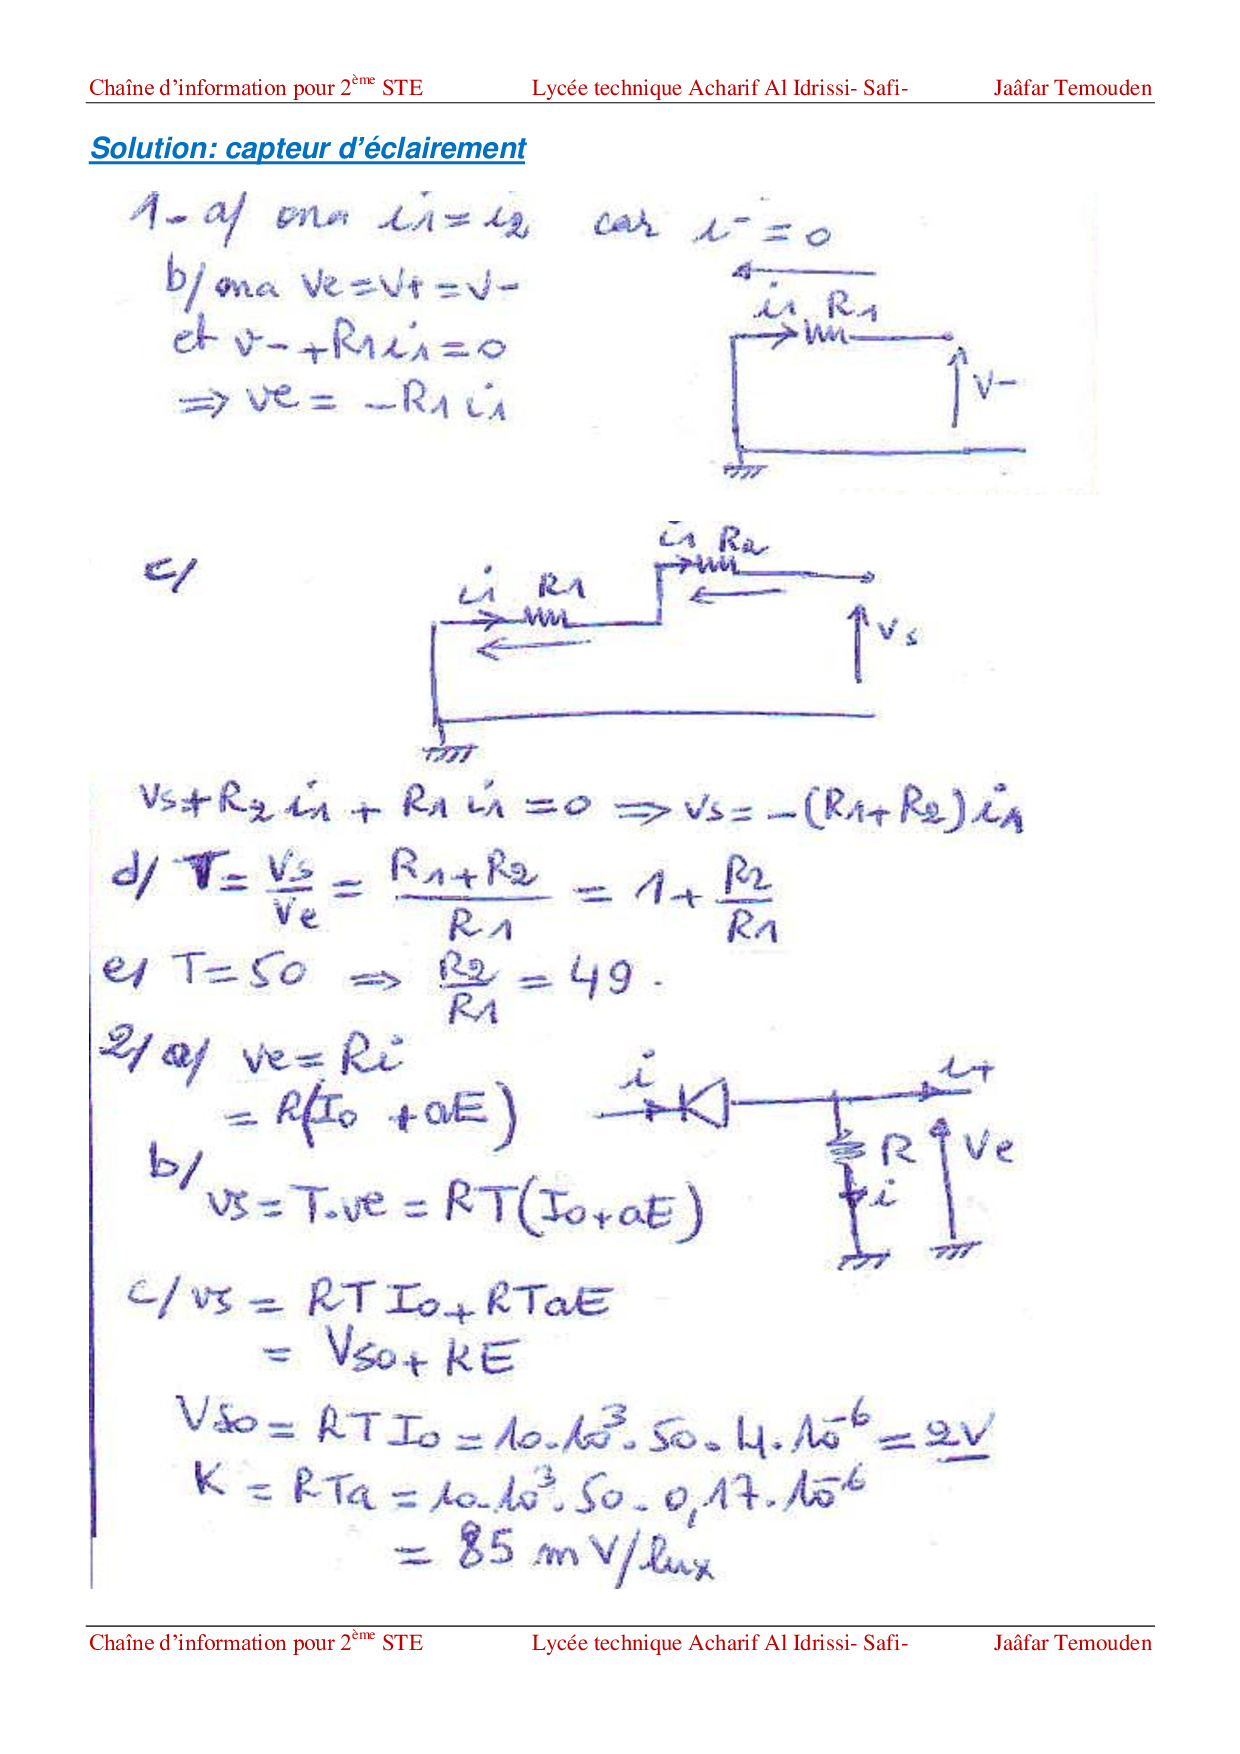 Chaîne d'information pour 2ème STE Lycée technique Acharif Al Idrissi- Safi- Jaâfar Temouden
Solution: capteur d'éclairement
1- a/ ona i1 = i2 car i- = 0
b/ ona Ve = V+ = V-
et V- + R1 i1 = 0
⇒ Ve = -R1 i1
i1 R1
V-
c/
i1 R2
i1 R1
Vs
Vs + R2 i1 + R1 i1 = 0 ⇒ Vs = -(R1+R2) i1
d/ T = Vs/Ve = (R1+R2)/R1 = 1 + R2/R1
e/ T = 50 ⇒ R2/R1 = 49.
2/ a/ Ve = Ri
= R(I0 + aE)
i i+
R Ve
i
b/
Vs = T.Ve = RT(I0 + aE)
c/ Vs = RTI0 + RTaE
= Vs0 + KE
Vs0 = RTI0 = 10.10³.50.4.10⁻⁶ = 2V
K = RTa = 10.10³.50.0,17.10⁻⁶
= 85 mV/lux
Chaîne d'information pour 2ème STE Lycée technique Acharif Al Idrissi- Safi- Jaâfar Temouden